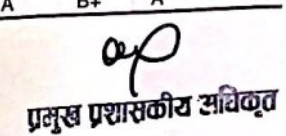 A B+ A
प्रमुख प्रशासकीय अधिकृत